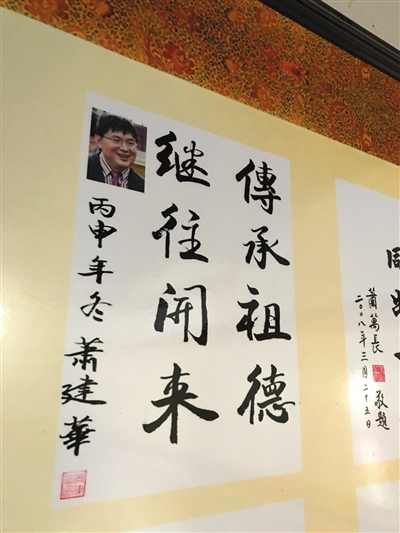 傳承祖德
继往開来
丙申年冬 蕭建華
蕭萬長 敬題
二〇〇八年三月二十五日